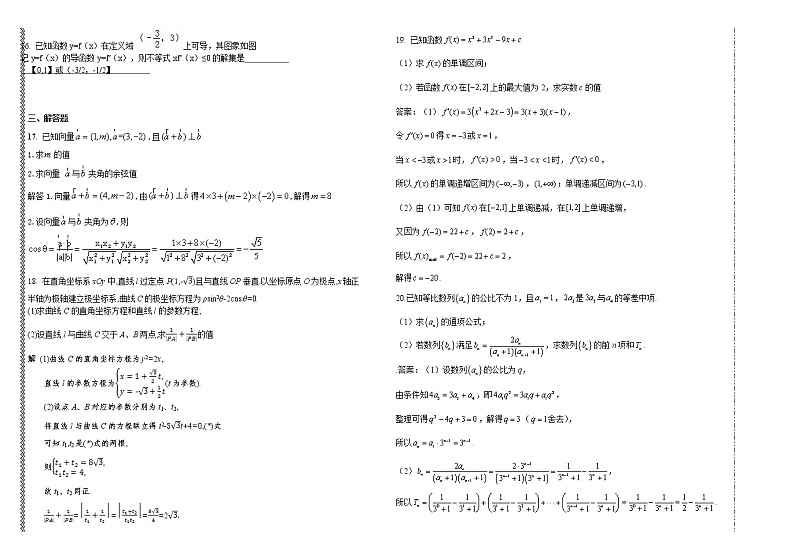 6. 已知函数 y=f（x）在定义域（-3/2，3）上可导，其图象如图
记 y=f（x）的导函数 y=f'（x），则不等式 xf'（x）≤0 的解集是
【0,1】或（-3/2,-1/2】
三、解答题
17. 已知向量 a=(1,m), a=(3,-2), 且 (a+b)⊥b
1.求m 的值
2.求向量 a与b 夹角的余弦值
解答 1.向量 a+b=(4,m-2), 由 (a+b)⊥b 得 4×3+(m-2)×(-2)=0, 解得 m=8
2.设向量 a与b 夹角为θ,则
cosθ= a·b/|a||b| = x₁x₂+y₁y₂/√x₁²+y₁²√x₂²+y₂² = 1×3+8×(-2)/√1²+8²√3²+(-2)² = -√5/5
18. 在直角坐标系 xOy 中,直线 l 过定点 P(1,-√3)且与直线 OP 垂直.以坐标原点 O 为极点,x 轴正
半轴为极轴建立极坐标系,曲线 C 的极坐标方程为 ρsin²θ-2cosθ=0.
(1)求曲线 C 的直角坐标方程和直线 l 的参数方程;
(2)设直线 l 与曲线 C 交于 A、B 两点,求1/|PA|+1/|PB|的值
解 (1)曲线 C 的直角坐标方程为 y²=2x,
直线 l 的参数方程为{x=1+√3/2 t, y=-√3+1/2 t (t 为参数).
(2)设点 A、B 对应的参数分别为 t₁、t₂,
将直线 l 与曲线 C 的方程联立得 t²-8√3t+4=0,(*)式
可知 t₁,t₂是(*)式的两根,
则{t₁+t₂=8√3, t₁t₂=4,
故 t₁、t₂同正.
1/|PA|+1/|PB|=|1/t₁+1/t₂|=|t₁+t₂/t₁t₂|=8√3/4=2√3.
19. 已知函数 f(x)=x³+3x²-9x+c
（1）求 f(x) 的单调区间；
（2）若函数 f(x) 在[-2,2]上的最大值为 2，求实数 c 的值.
答案：（1） f'(x)=3(x²+2x-3)=3(x+3)(x-1)，
令 f'(x)=0 得 x=-3或 x=1，
当 x<-3或 x>1时， f'(x)>0，当-3<x<1时， f'(x)<0，
所以 f(x) 的单调递增区间为(-∞,-3)，(1,+∞)；单调递减区间为(-3,1).
（2）由（1）可知 f(x) 在[-2,1]上单调递减，在[1,2]上单调递增，
又因为 f(-2)=22+c， f(2)=2+c，
所以 f(x)max=f(-2)=22+c=2，
解得 c=-20.
20.已知等比数列{aₙ}的公比不为 1，且 a₁=1， 2a₃是 3a₂与 a₄的等差中项.
（1）求{aₙ}的通项公式；
（2）若数列{bₙ}满足 bₙ=2aₙ/(aₙ+1)(aₙ₊₁+1)，求数列{bₙ}的前 n项和Tₙ.
.答案：（1）设数列{aₙ}的公比为 q，
由条件知 4a₃=3a₂+a₄，即 4a₁q²=3a₁q+a₁q³，
整理可得 q²-4q+3=0，解得 q=3（q=1舍去），
所以 aₙ=a₁·3ⁿ⁻¹=3ⁿ⁻¹.
（2） bₙ=2aₙ/(aₙ+1)(aₙ₊₁+1)=2·3ⁿ⁻¹/(3ⁿ⁻¹+1)(3ⁿ+1)=1/3ⁿ⁻¹+1-1/3ⁿ+1，
所以 Tₙ=(1/3⁰+1-1/3¹+1)+(1/3¹+1-1/3²+1)+⋯+(1/3ⁿ⁻¹+1-1/3ⁿ+1)=1/3⁰+1-1/3ⁿ+1=1/2-1/3ⁿ+1.